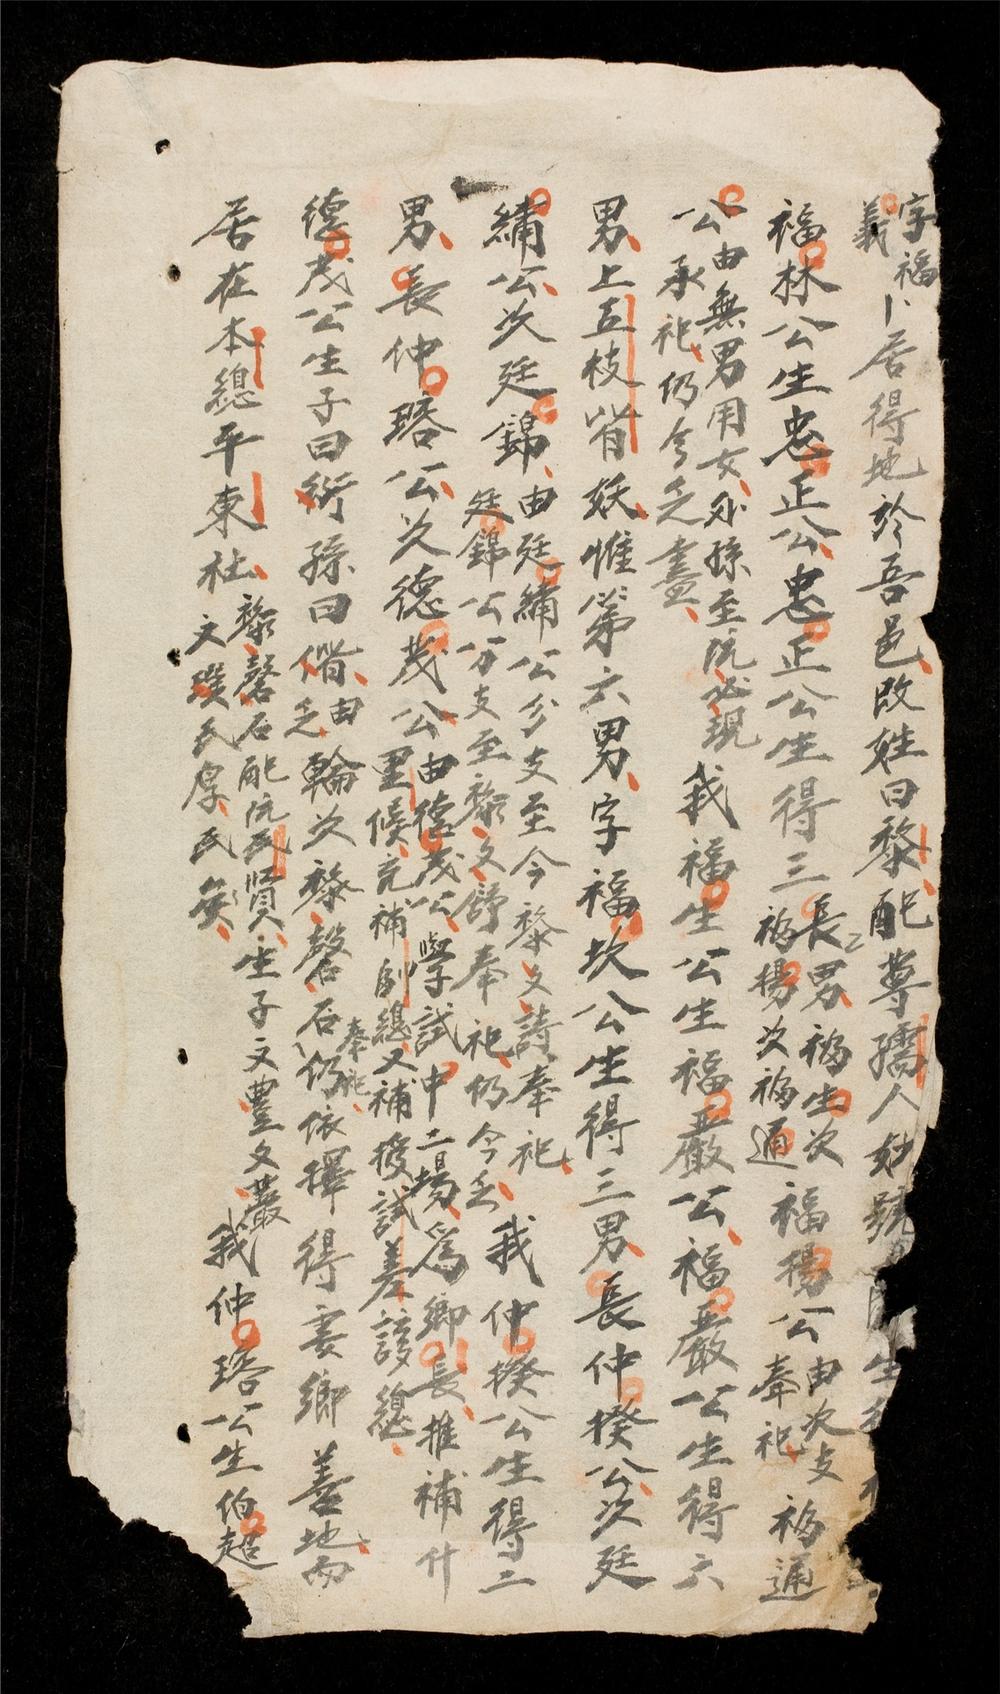 字福
義卜居得地於吾邑改姓曰黎配尊孺人妣號
福林公生忠正公忠正公生得三長男福生次
福揚次福通福揚公由次支
奉祀福通
公由無男用女外孫至阮必現
承祀仍今乏盡我福生公生福嚴公福嚴公生得六
男上五枝皆妖惟第六男字福坎公生得三男長仲揆公次廷
繡公次廷錦由廷繡公分支至今黎文詩奉祀
廷錦公分支至黎文奉祀仍今乏我仲揆公生得二
男長仲瑢公次德茂公由德茂公學試中二場為鄉長推補什
里候充補副總又補授試差該總
德茂公生子曰衍孫曰偕由
乏輪次黎磬石仍依擇得妻鄉善地而
奉祀
居在本總平東社黎磬石配阮氏賢生子文豊文嚴
文璞氏厚氏矣我仲瑢公生伯超